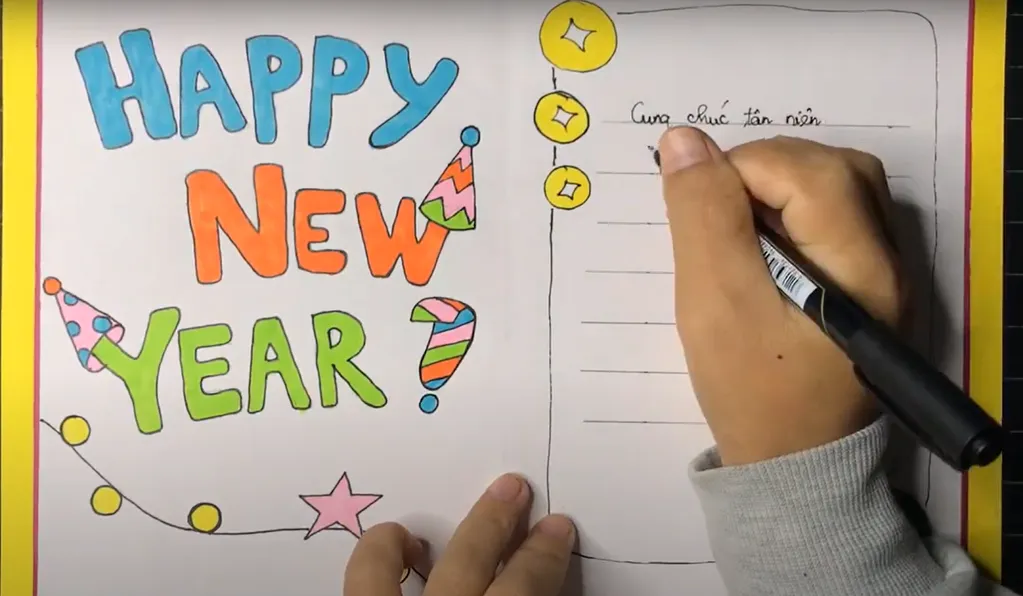 HAPPY
NEW
YEAR ?
Cung chúc tân niên